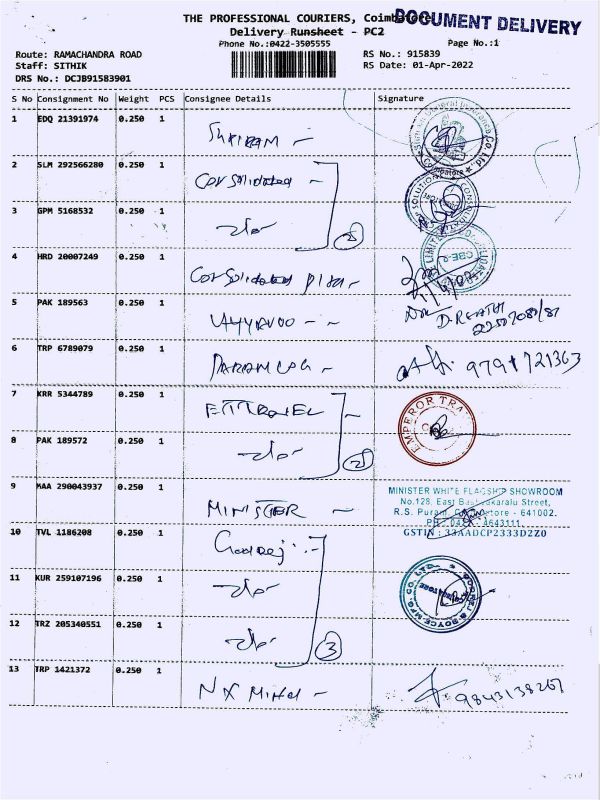 THE PROFESSIONAL COURIERS, Coimbatore
DOCUMENT DELIVERY
Delivery Runsheet - PC2
Phone No.:0422-3505555
Page No.:1
Route: RAMACHANDRA ROAD
RS No.: 915839
Staff: SITHIK
RS Date: 01-Apr-2022
DRS No.: DCJB91583901
S No Consignment No Weight PCS Consignee Details Signature
1 EDQ 21391974 0.250 1
SHRIRAM
2 SLM 292566280 0.250 1
Consolidated
3 GPM 5168532 0.250 1
-do-
2
4 HRD 20007249 0.250 1
Consolidated
5 PAK 189563 0.250 1
6 TRP 6789079 0.250 1
9791721363
7 KRR 5344789 0.250 1
EMPEROR TRA
8 PAK 189572 0.250 1
-do-
2
9 MAA 290043937 0.250 1
MINISTER
MINISTER WHITE FLAGSHIP SHOWROOM
No.128, East Street,
R.S. Puram, Coimbatore - 641002.
GSTIN : 33AADCP2333D2Z0
10 TVL 1186208 0.250 1
Godrej
11 KUR 259107196 0.250 1
-do-
12 TRZ 205340551 0.250 1
-do-
3
13 TRP 1421372 0.250 1
9843138267